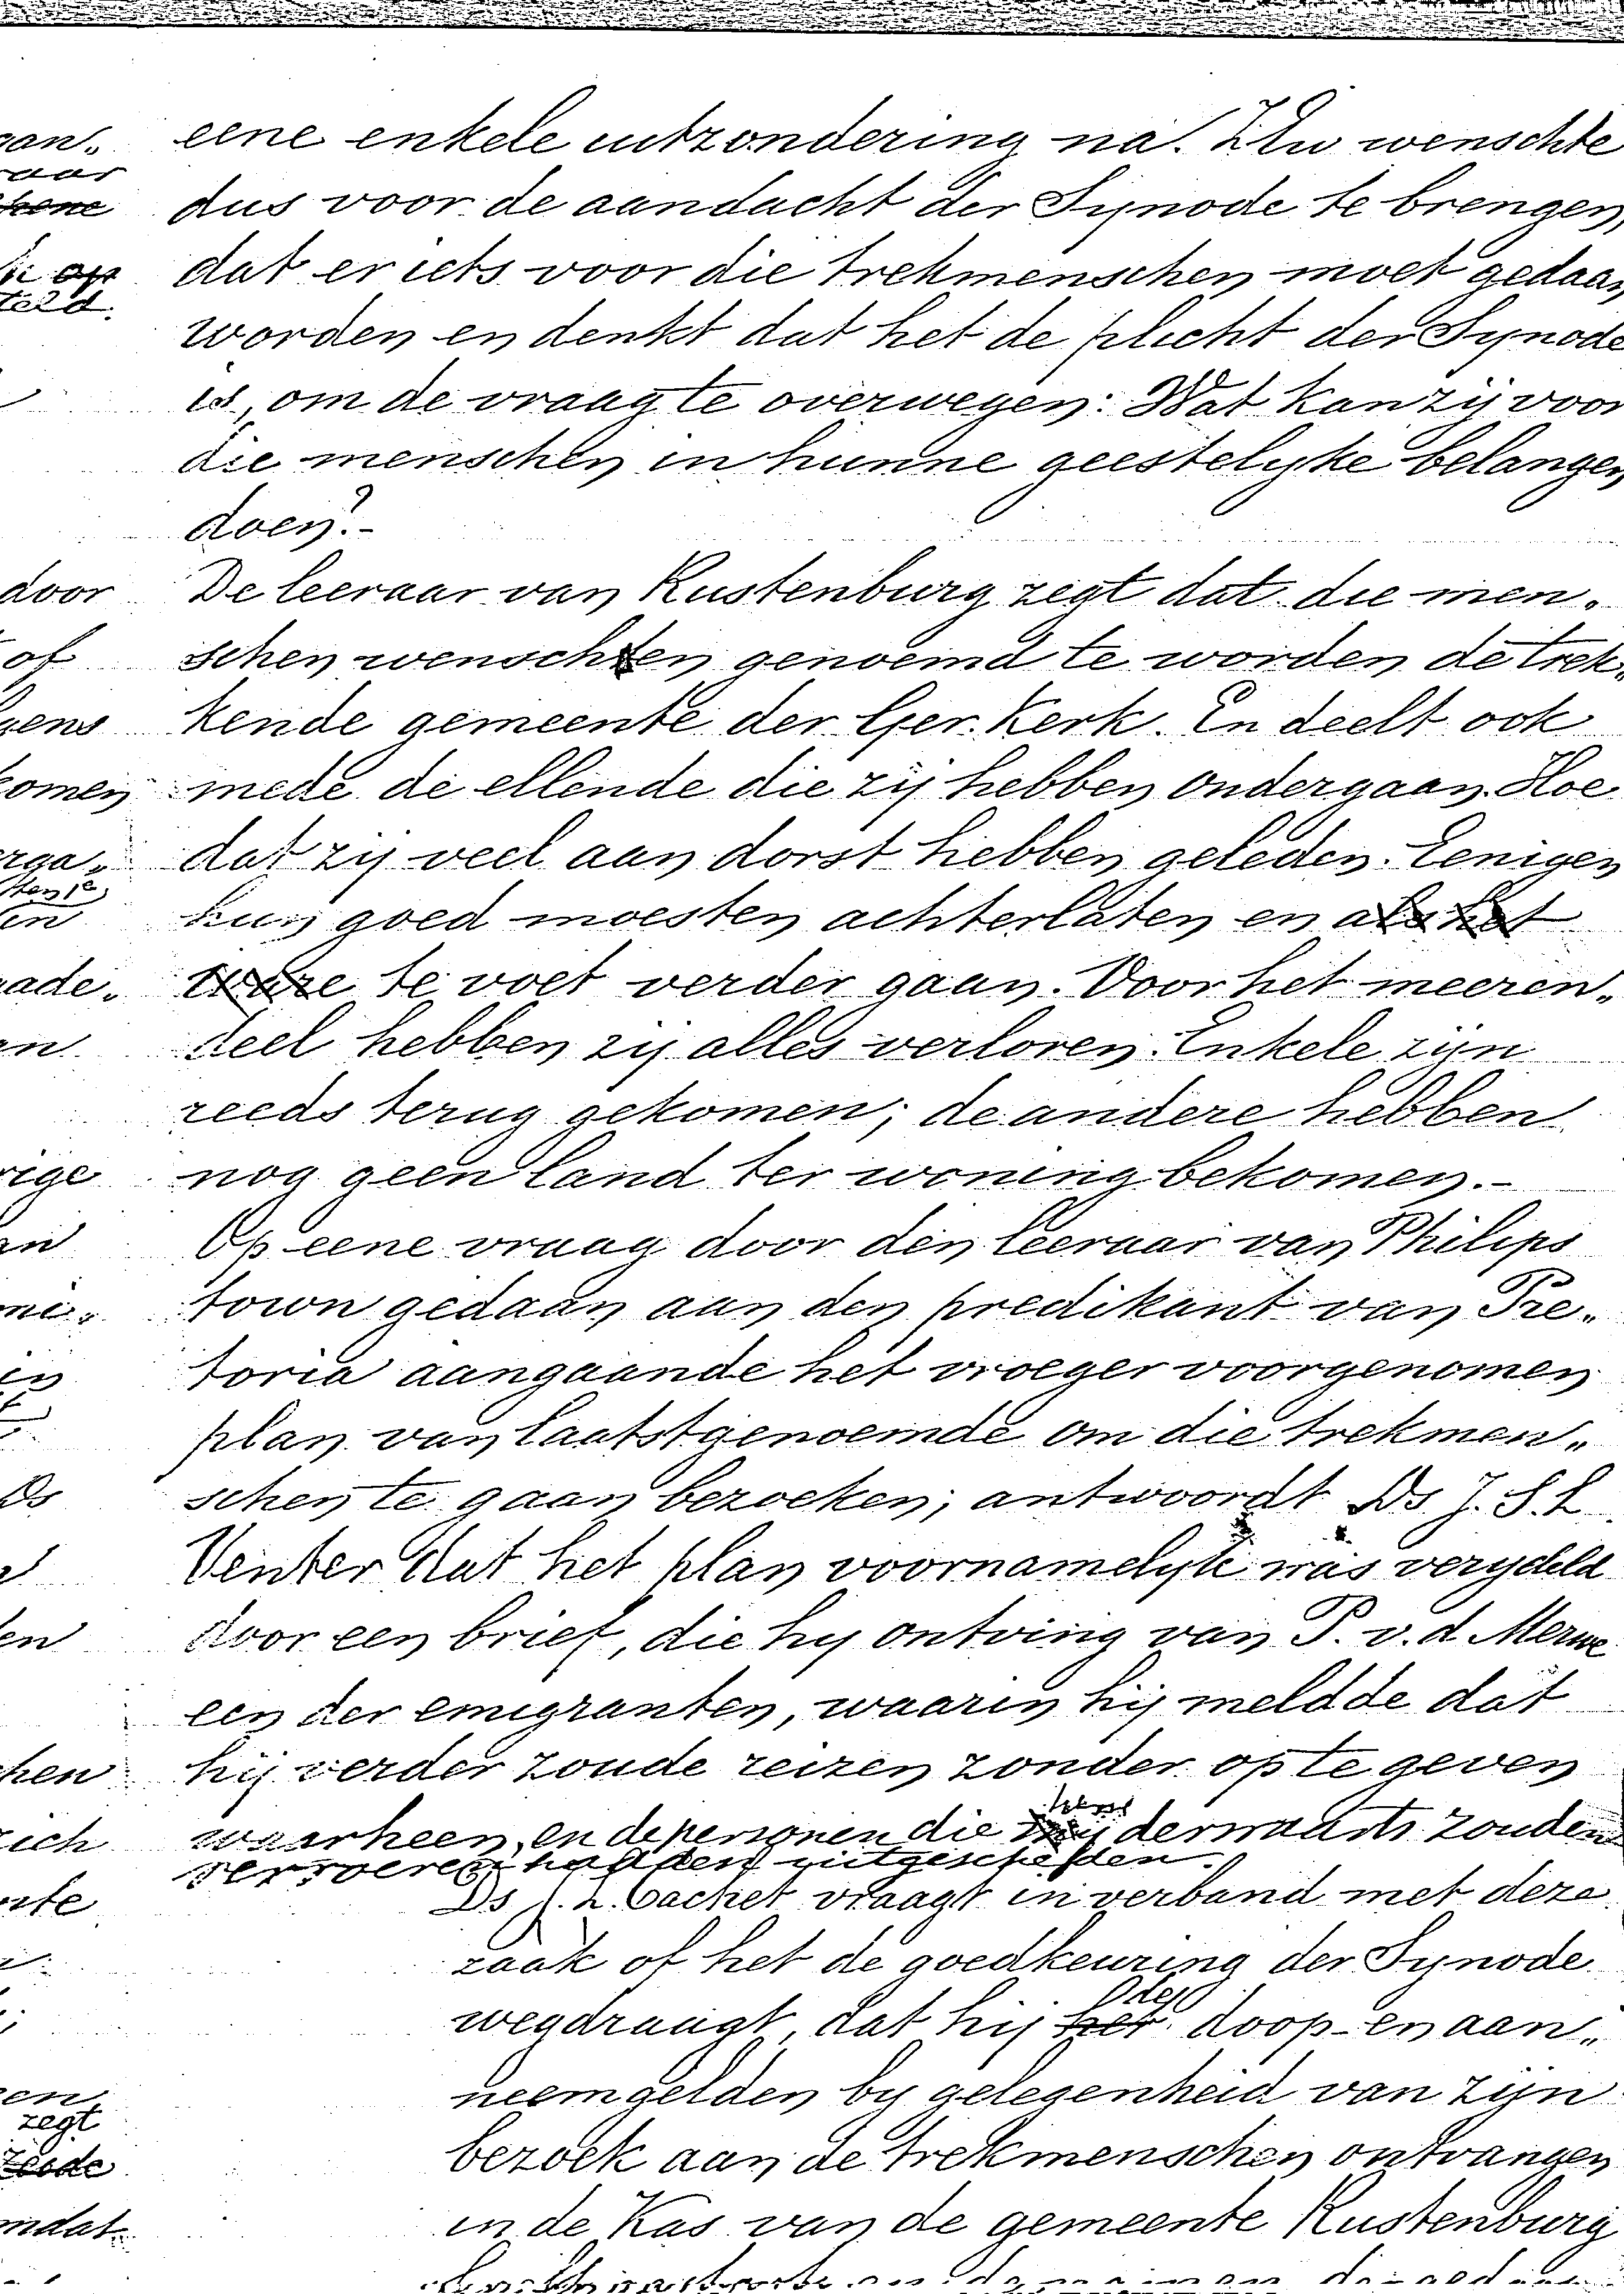 eene enkele uitzondering na. ZEw wenschte
dus voor de aandacht der Synode te brengen
dat er iets voor die trekmenschen moet gedaan
worden en denkt dat het de plicht der Synode
is, om de vraag te overwegen: Wat kan zij voor
die menschen in hunne geestelyke belangen
doen?-
De leeraar van Rustenburg zegt dat die men„
schen wenschten genoemd te worden de trek„
kende gemeente der Ger. Kerk. En deelt ook
mede de ellende die zij hebben ondergaan. Hoe
dat zij veel aan dorst hebben geleden. Eenigen
hun goed moesten achterlaten en als het
ware te voet verder gaan. Voor het meeren„
deel hebben zij alles verloren. Enkele zijn
reeds terug gekomen; de andere hebben
nog geen land ter woning bekomen.-
Op eene vraag door den leeraar van Philips
town gedaan aan den predikant van Pre„
toria aangaande het vroeger voorgenomen
plan van laatstgenoemde om die trekmen„
schen te gaan bezoeken; antwoordt Ds J. S. L
Venter dat het plan voornamelijk was verydeld
door een brief, die hy ontving van P. v. d. Merwe
een der emigranten, waarin hij meldde dat
hij verder zoude reizen zonder op te geven
waarheen, en de personen die hem derwaarts zouden
vervoeren hadden uitgescheiden.
Ds J. L. Cachet vraagt in verband met deze
zaak of het de goedkeuring der Synode
wegdraagt, dat hij het de doop- en aan„
neemgelden by gelegenheid van zijn
bezoek aan de trekmenschen ontvangen
in de Kas van de gemeente Rustenburg